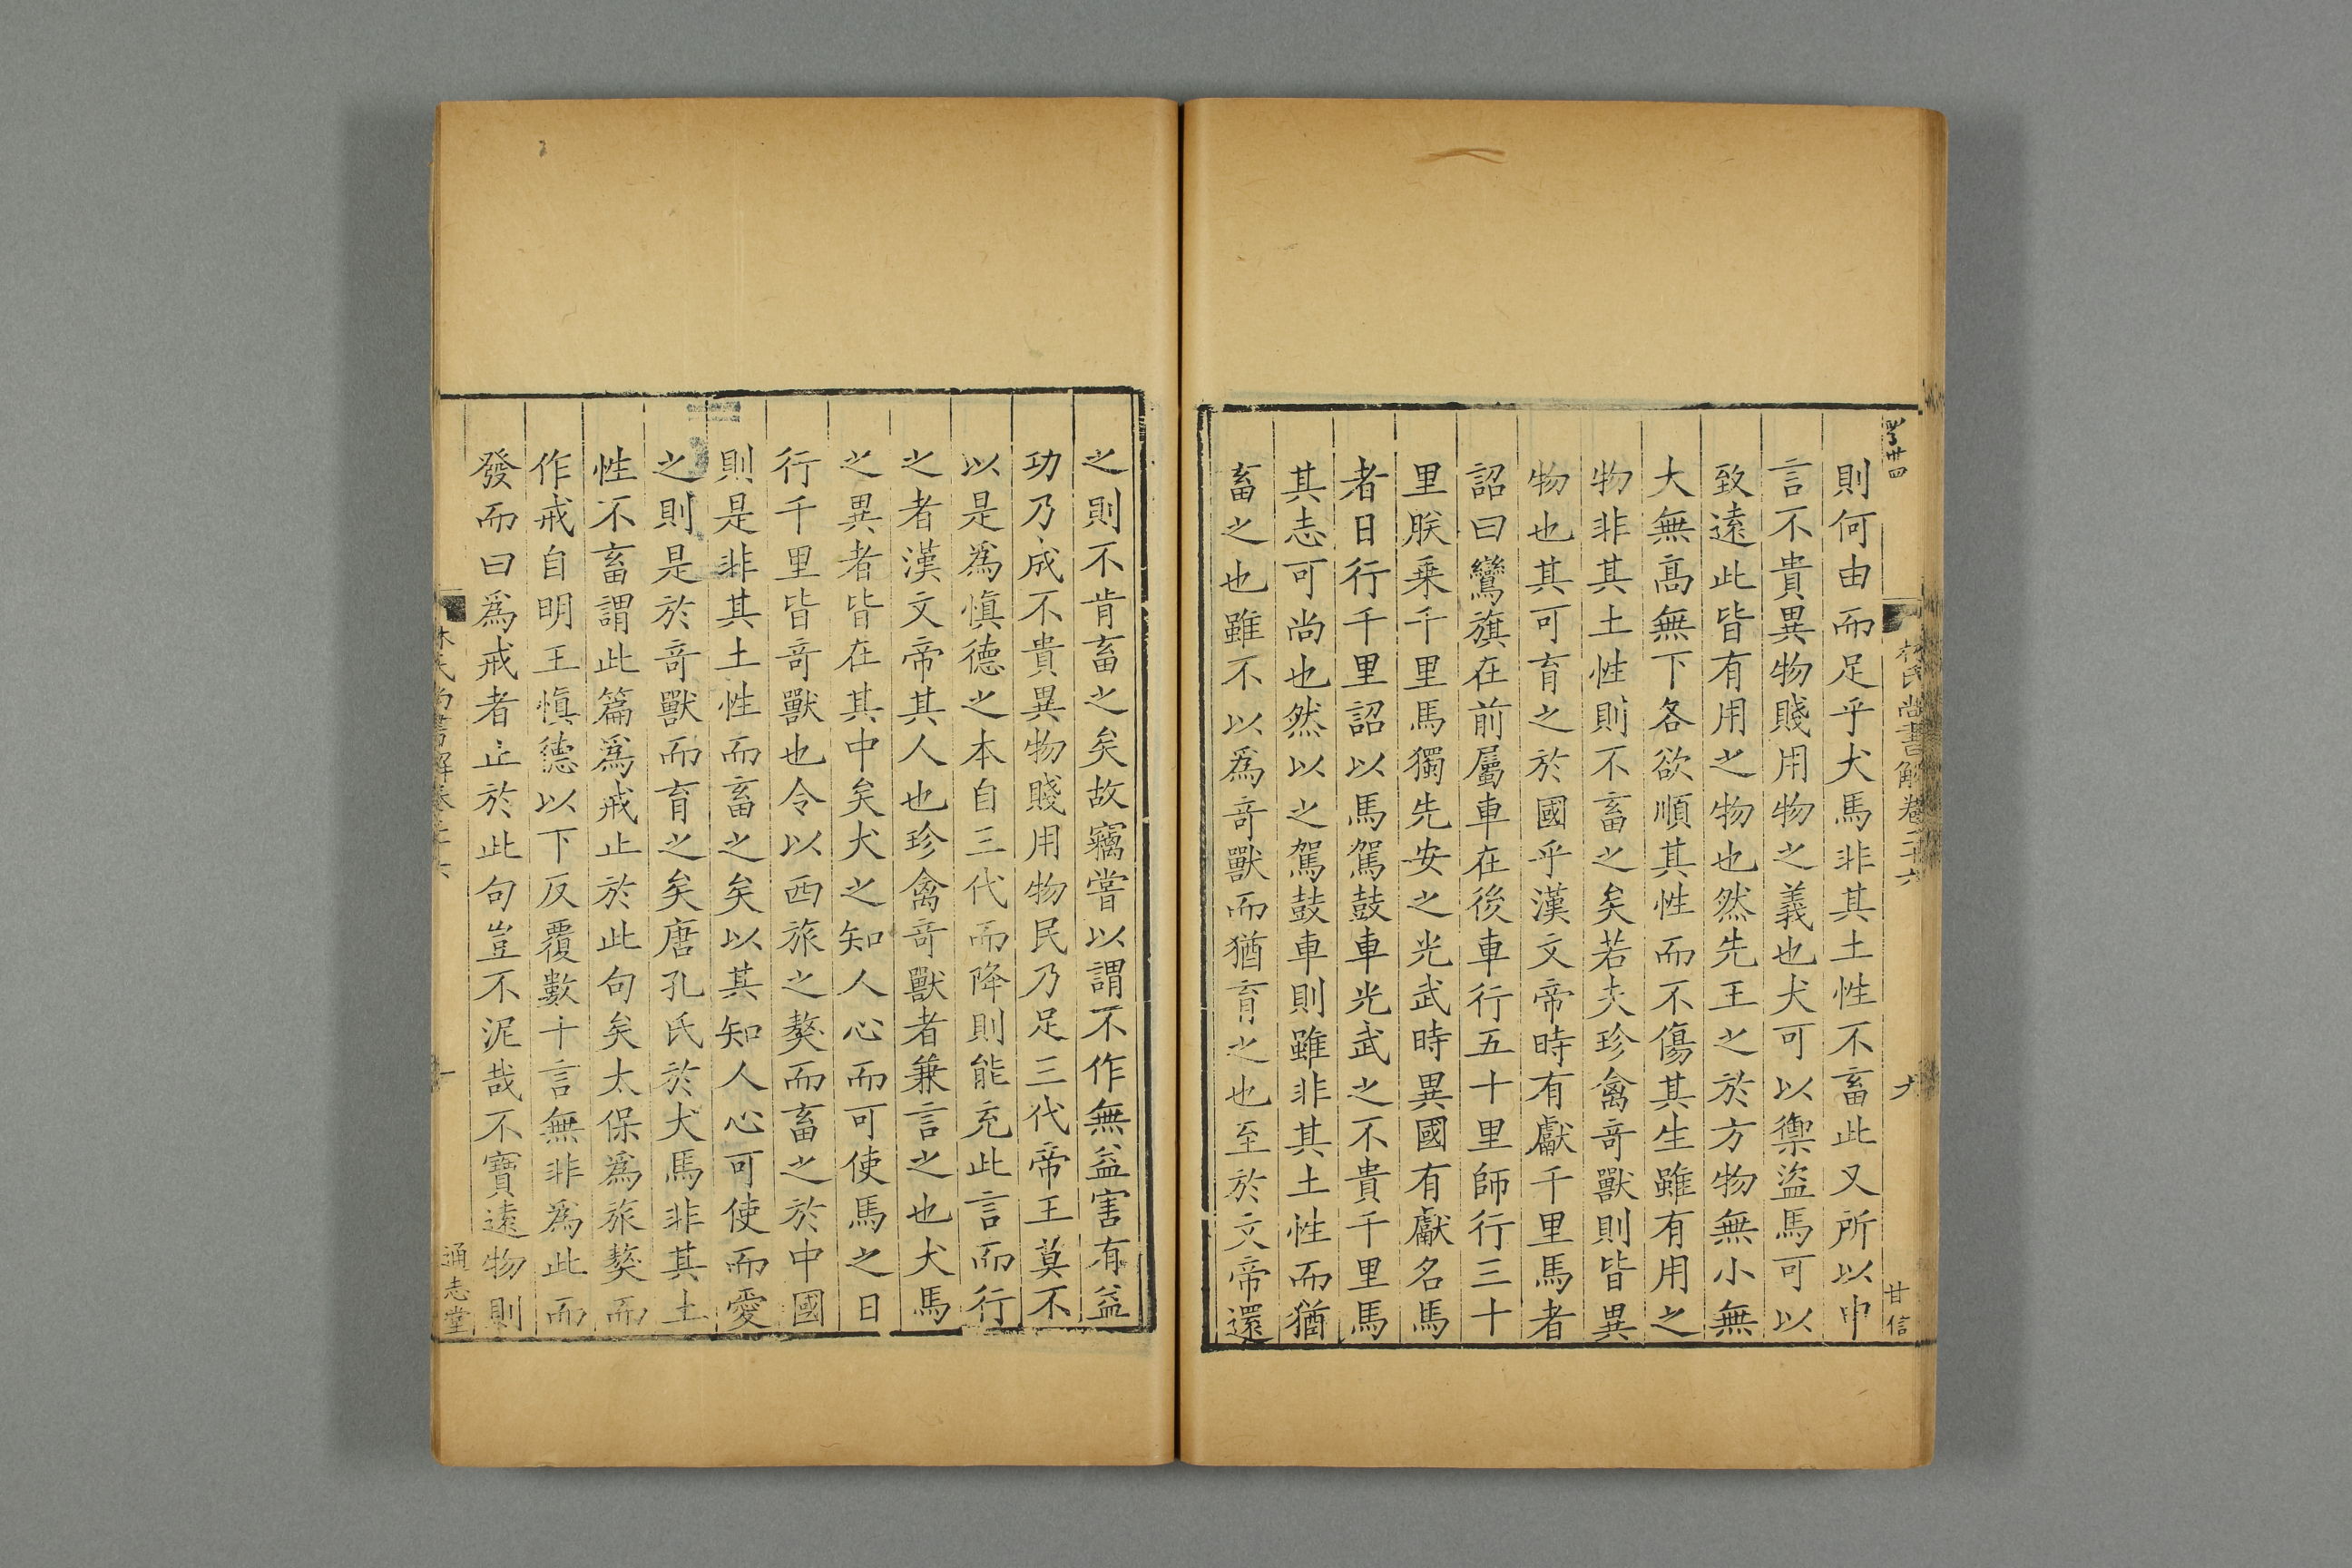 則何由而足乎犬馬非其土性不畜此又所以申
言不貴異物賤用物之義也犬可以禦盜馬可以
致遠此皆有用之物也然先王之於方物無小無
大無高無下各欲順其性而不傷其生雖有用之
物非其土性則不畜之矣若夫珍禽奇獸則皆異
物也其可育之於國乎漢文帝時有獻千里馬者
詔曰鸞旗在前屬車在後車行五十里師行三十
里朕乗千里馬獨先安之光武時異國有獻名馬
者日行千里詔以馬駕鼓車光武之不貴千里馬
其志可尚也然以之駕鼓車則雖非其土性而猶
畜之也雖不以為奇獸而猶育之也至於文帝還
之則不肯畜之矣故竊嘗以謂不作無益害有益
功乃成不貴異物賤用物民乃足三代帝王莫不
以是為慎德之本自三代而降則能充此言而行
之者漢文帝其人也珍禽奇獸者兼言之也犬馬
之異者皆在其中矣犬之知人心而可使馬之日
行千里皆奇獸也令以西旅之獒而畜之於中國
則是非其土性而畜之矣以其知人心可使而愛
之則是於奇獸而育之矣唐孔氏於犬馬非其土
性不畜謂此篇為戒止於此句矣太保為旅獒而
作戒自明王慎德以下反覆數十言無非為此而
發而曰為戒者止於此句豈不泥哉不寶遠物則
林氏尚書解卷二十六
甘信
通志堂